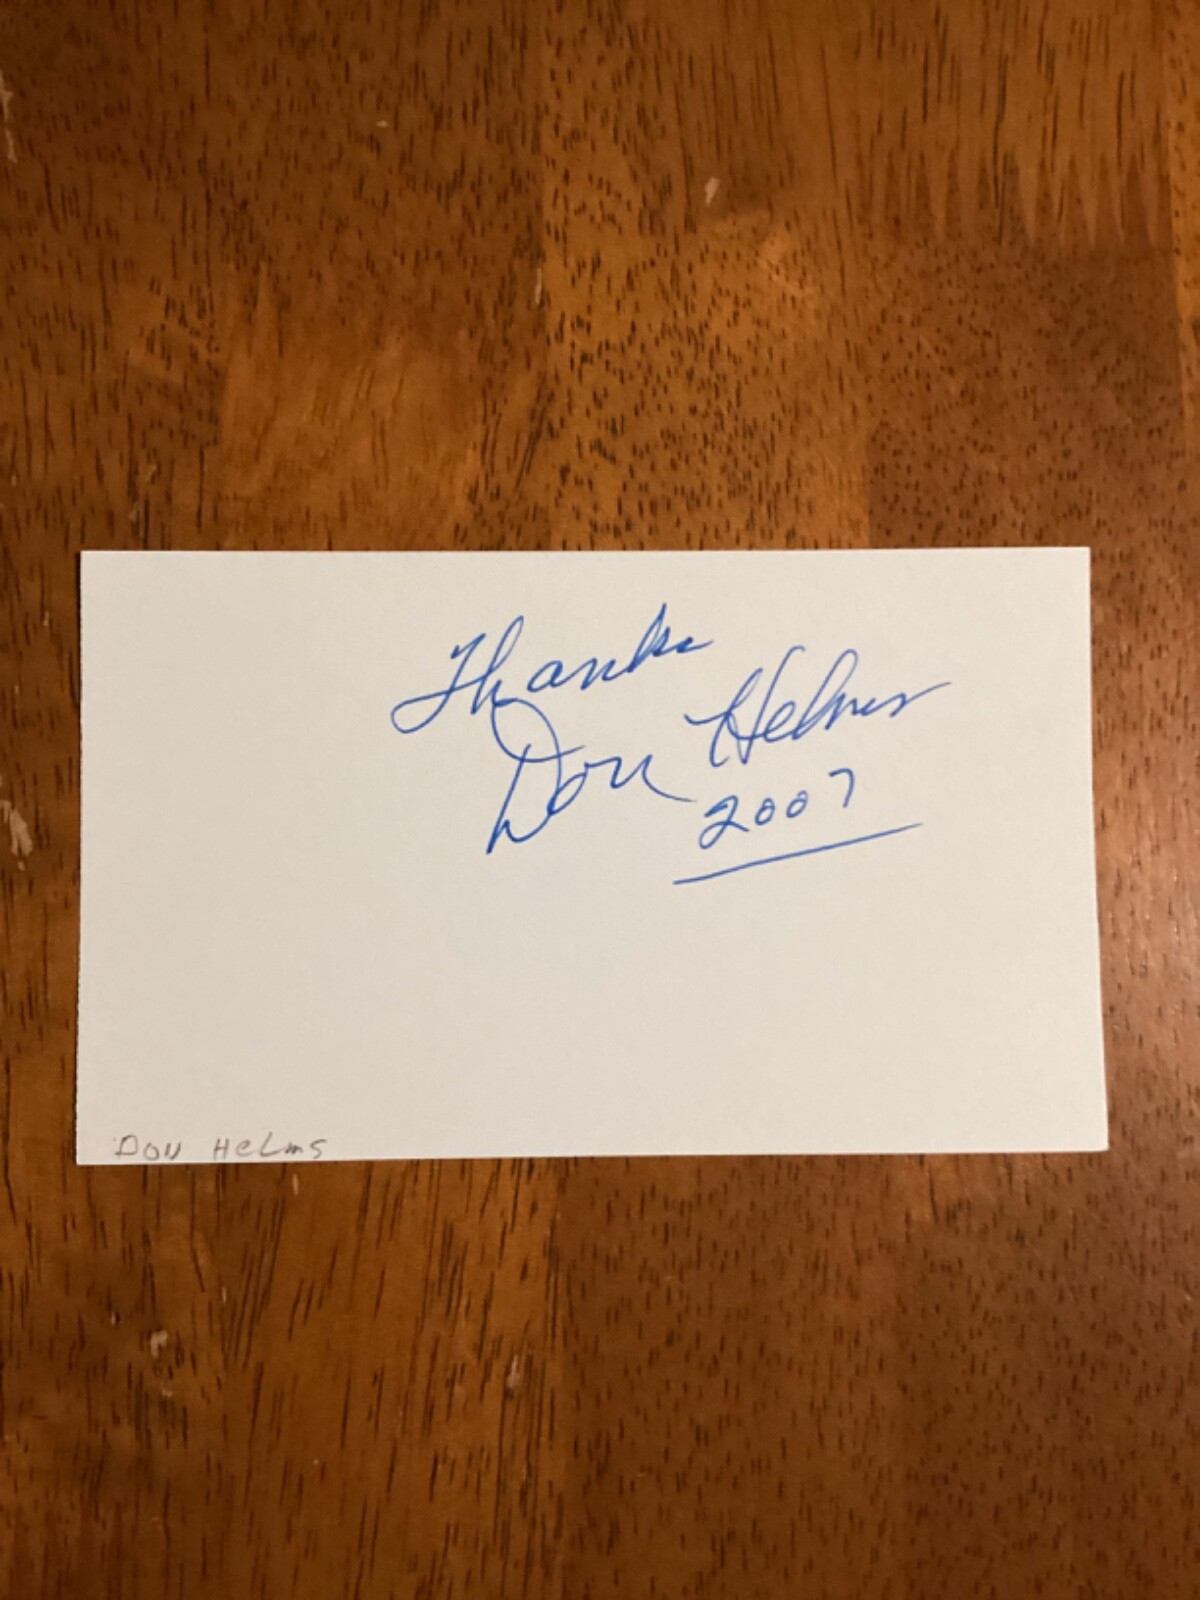 Thanks
Don Helms
2007
Don Helms